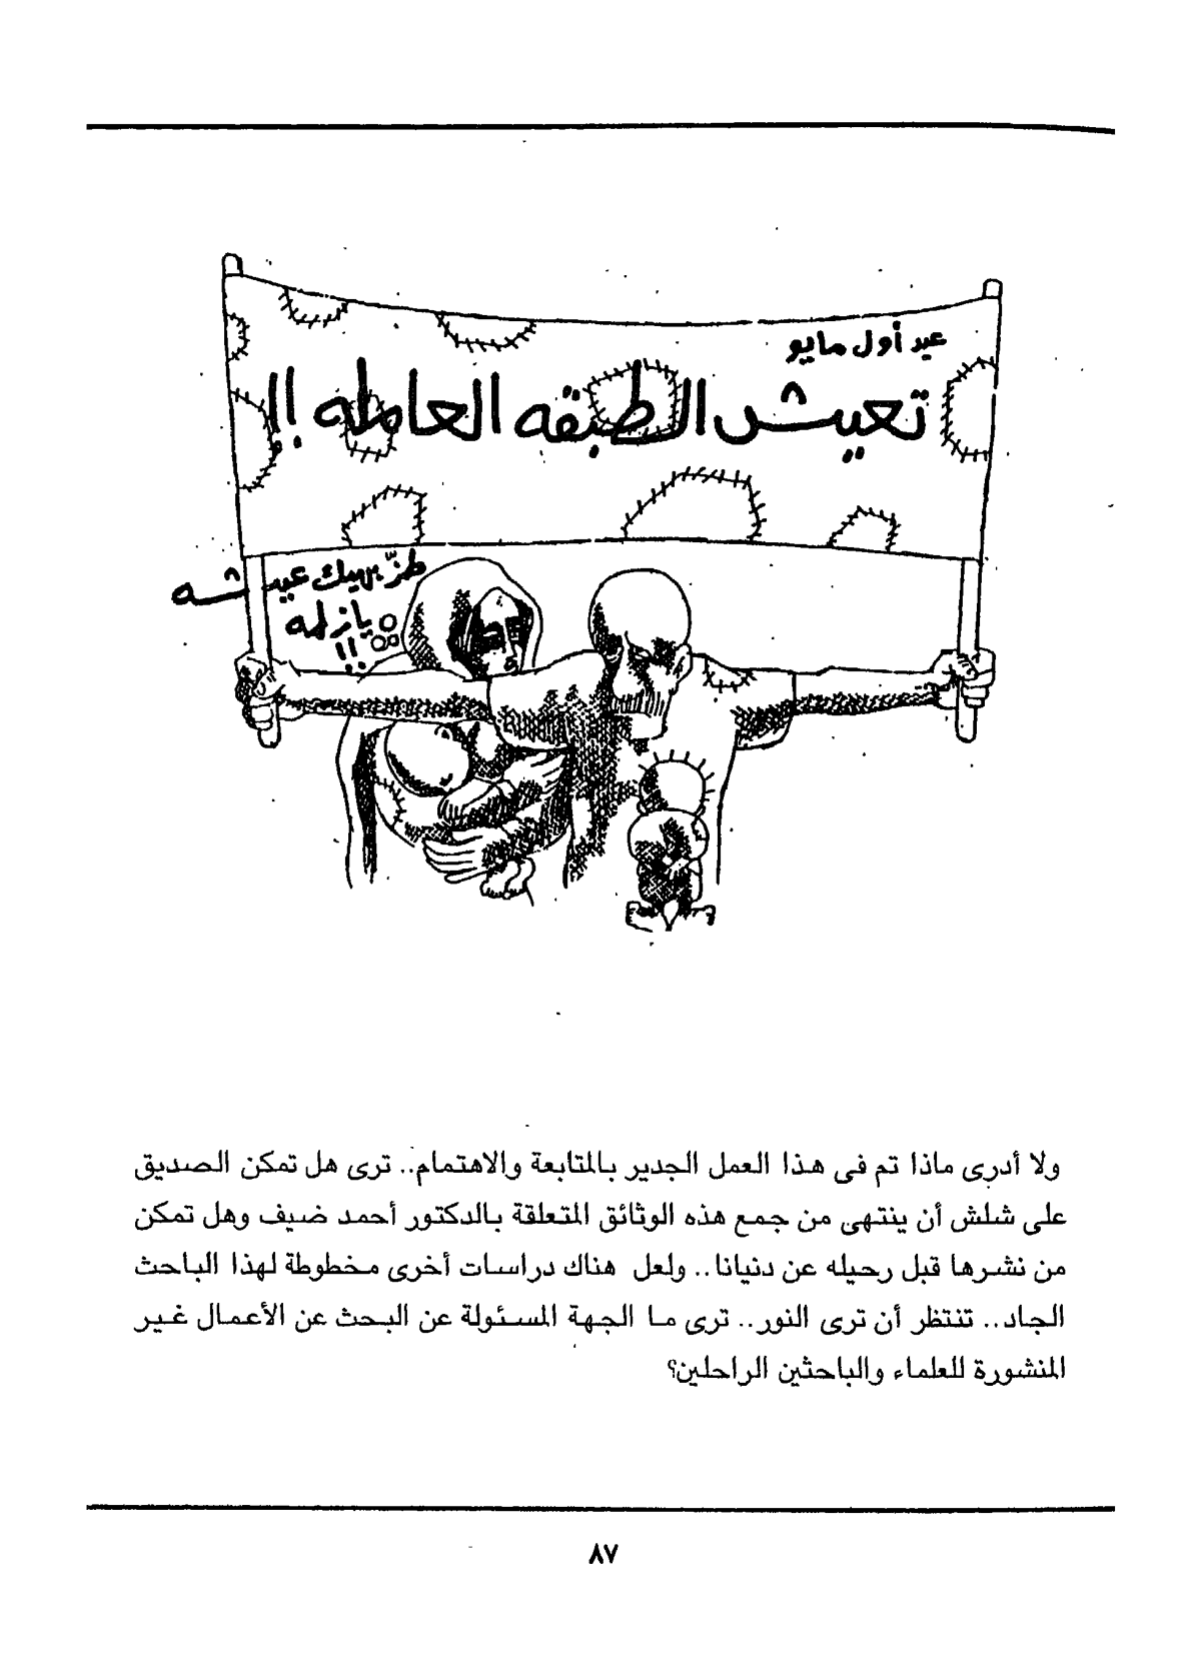 عيد أول مايو
تعيش الطبقه العامله !!
طزّ بهيك عيشه
يا زلمه
!!
ولا أدرى ماذا تم فى هذا العمل الجدير بالمتابعة والاهتمام.. ترى هل تمكن الصديق
على شلش أن ينتهى من جمع هذه الوثائق المتعلقة بالدكتور أحمد ضيف وهل تمكن
من نشرها قبل رحيله عن دنيانا.. ولعل هناك دراسات أخرى مخطوطة لهذا الباحث
الجاد.. تنتظر أن ترى النور.. ترى ما الجهة المسئولة عن البحث عن الأعمال غير
المنشورة للعلماء والباحثين الراحلين؟
٨٧